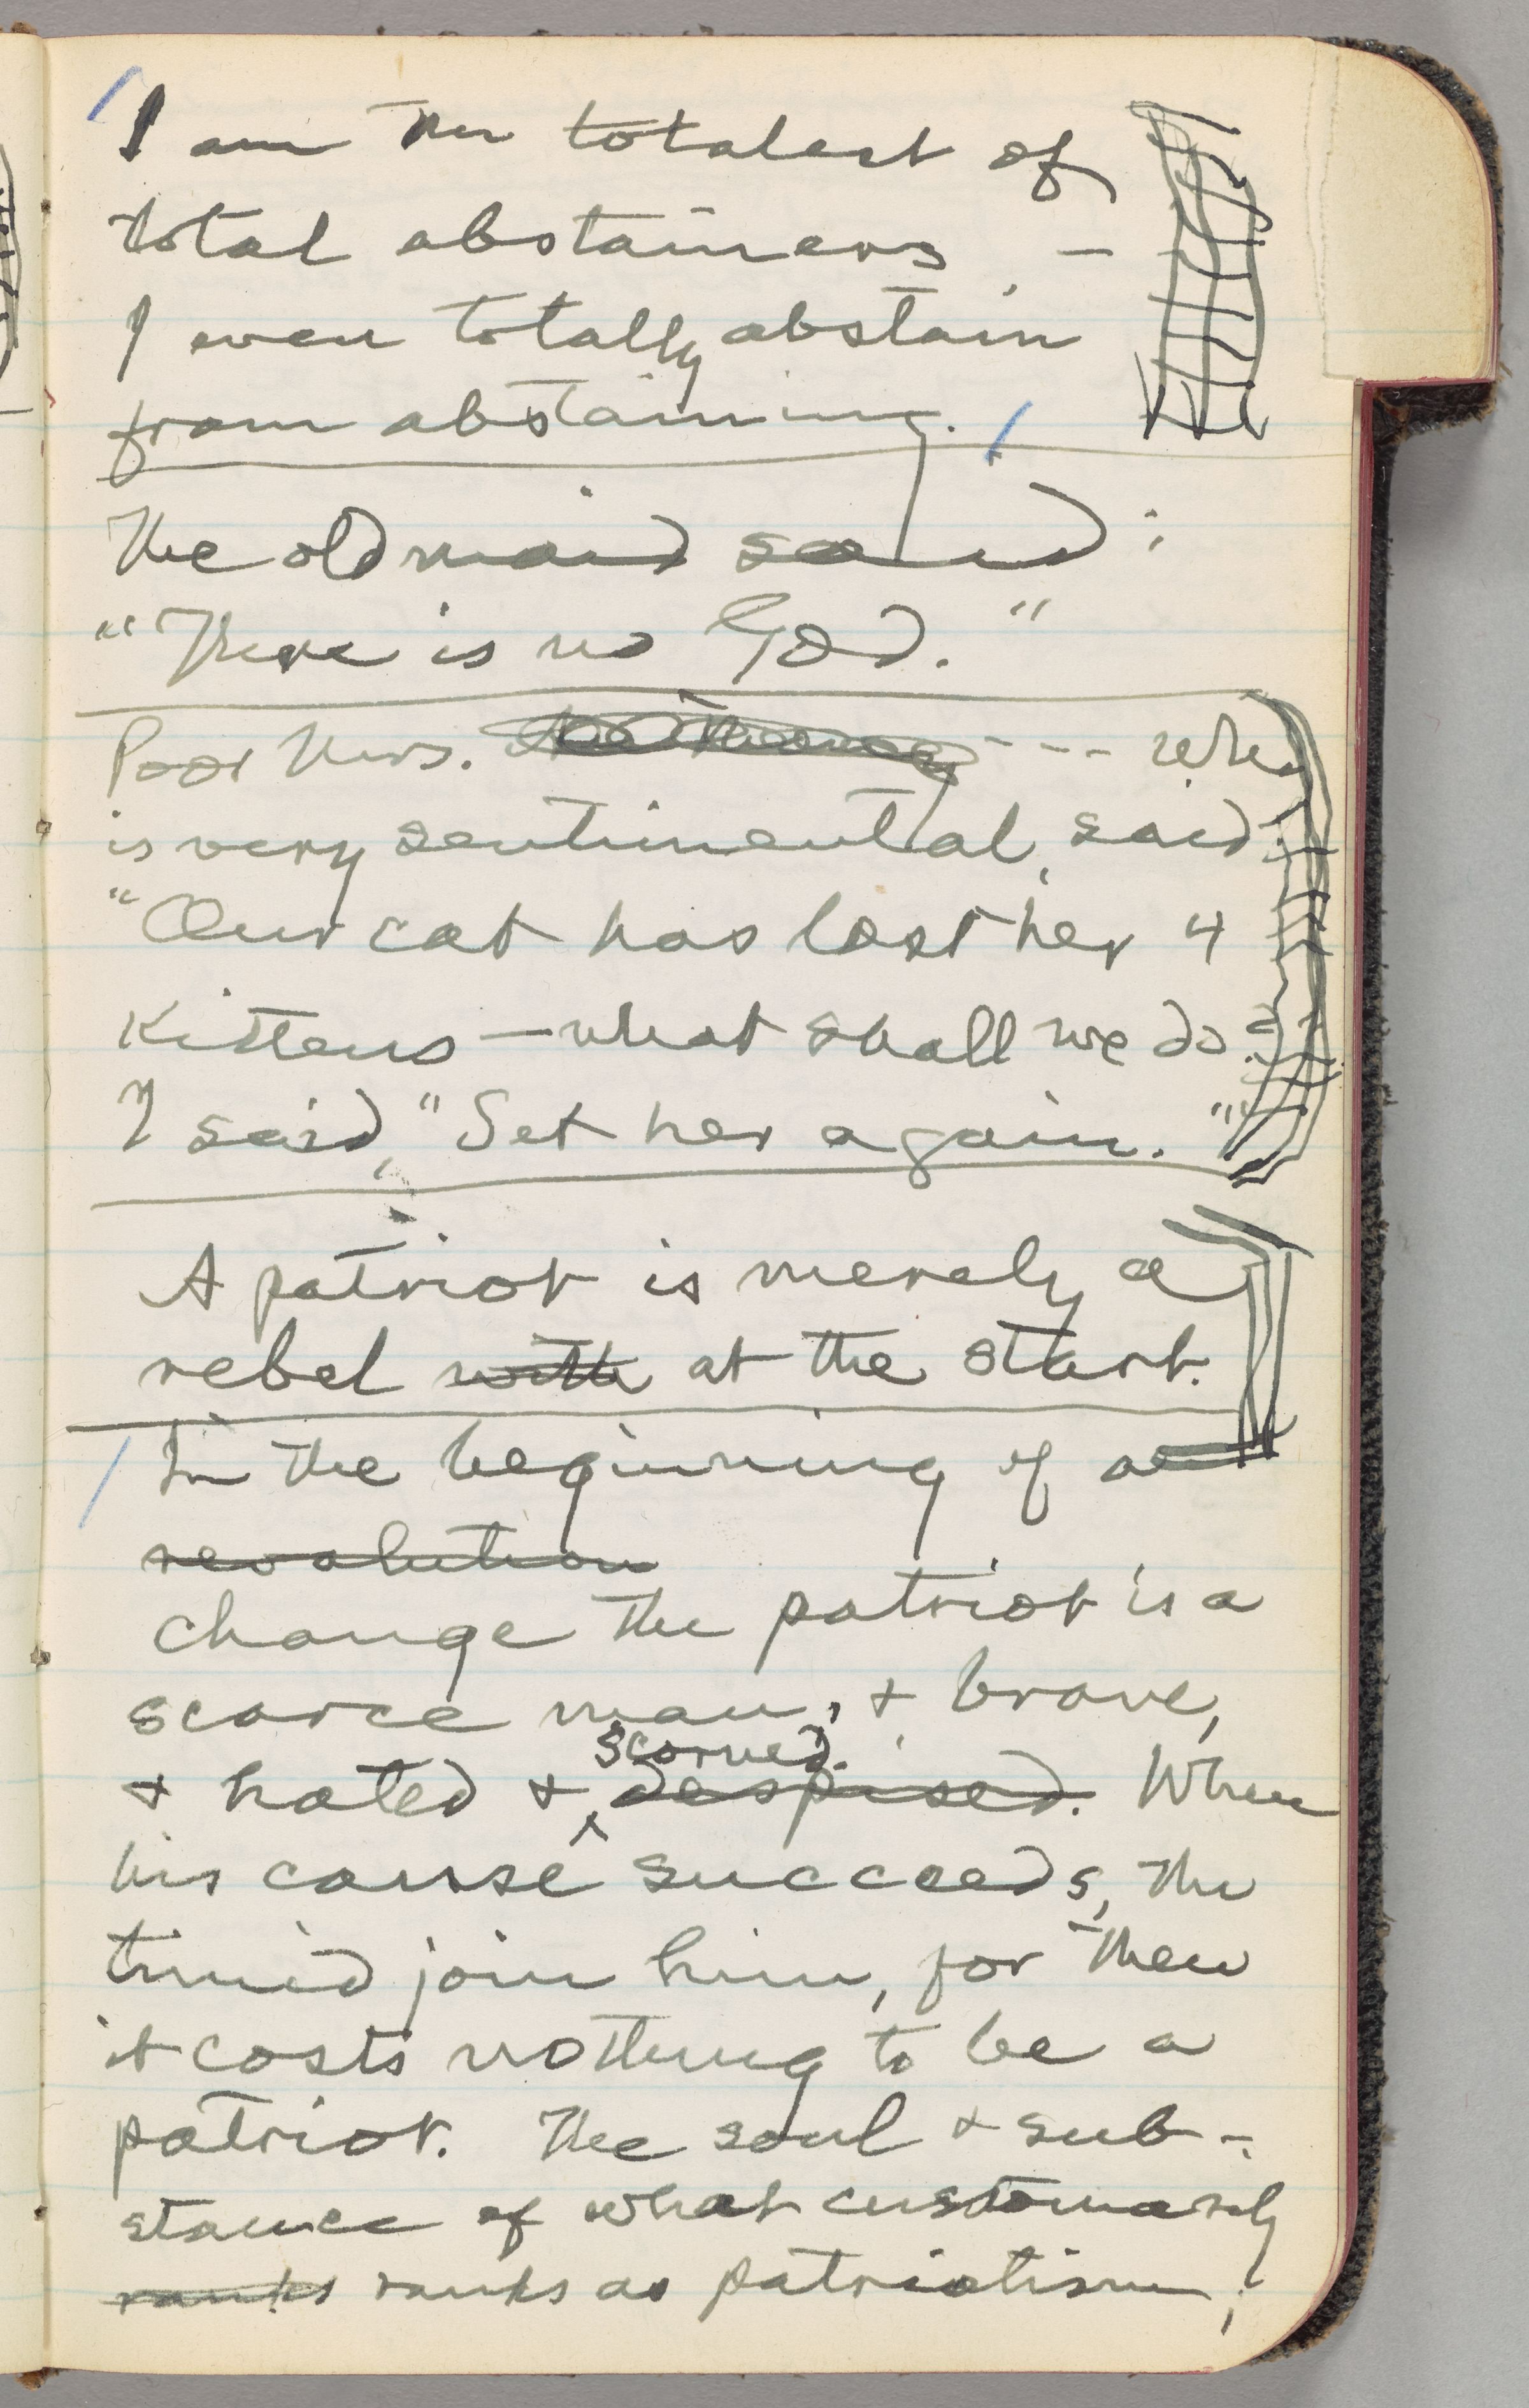 I am the totalest of
total abstainers, –
I even totally abstain
from abstaining.
The old maid said:
"There is no God."
Poor Mrs. --- who
is very sentimental, said:
"Our cat has lost her 4
kittens – what shall we do?"
I said, "Set her again."
A patriot is merely a
rebel with at the start.
In the beginning of a
revolution
change the patriot is a
scarce man, + brave,
scorned.
+ hated + despised. When
his cause succeeds, the
timid join him, for then
it costs nothing to be a
patriot. The soul + sub-
stance of what customarily
ranks ranks as patriotism,